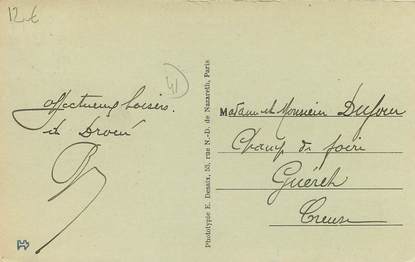 12€
41
affectueux baisers.
de Dreux
Phototypie E. Desaix, 53, rue N.-D. de Nazareth, Paris
Madame et Monsieur Dufour
Champ de foire
Guéret
Creuse